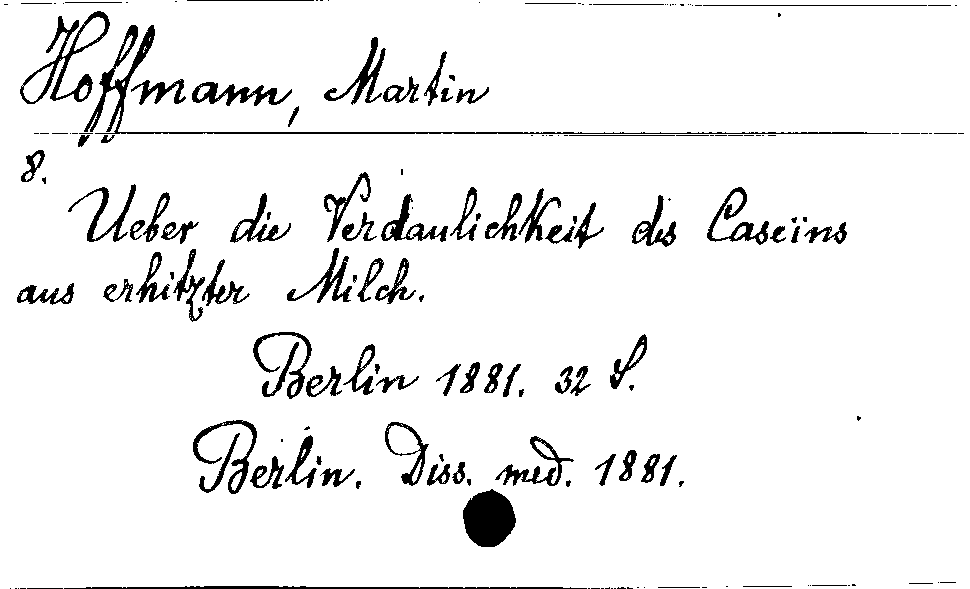 Hoffmann, Martin
8.
Ueber die Verdaulichkeit des Caseins
aus erhitzter Milch.
Berlin 1881. 32 S.
Berlin. Diss. med. 1881.